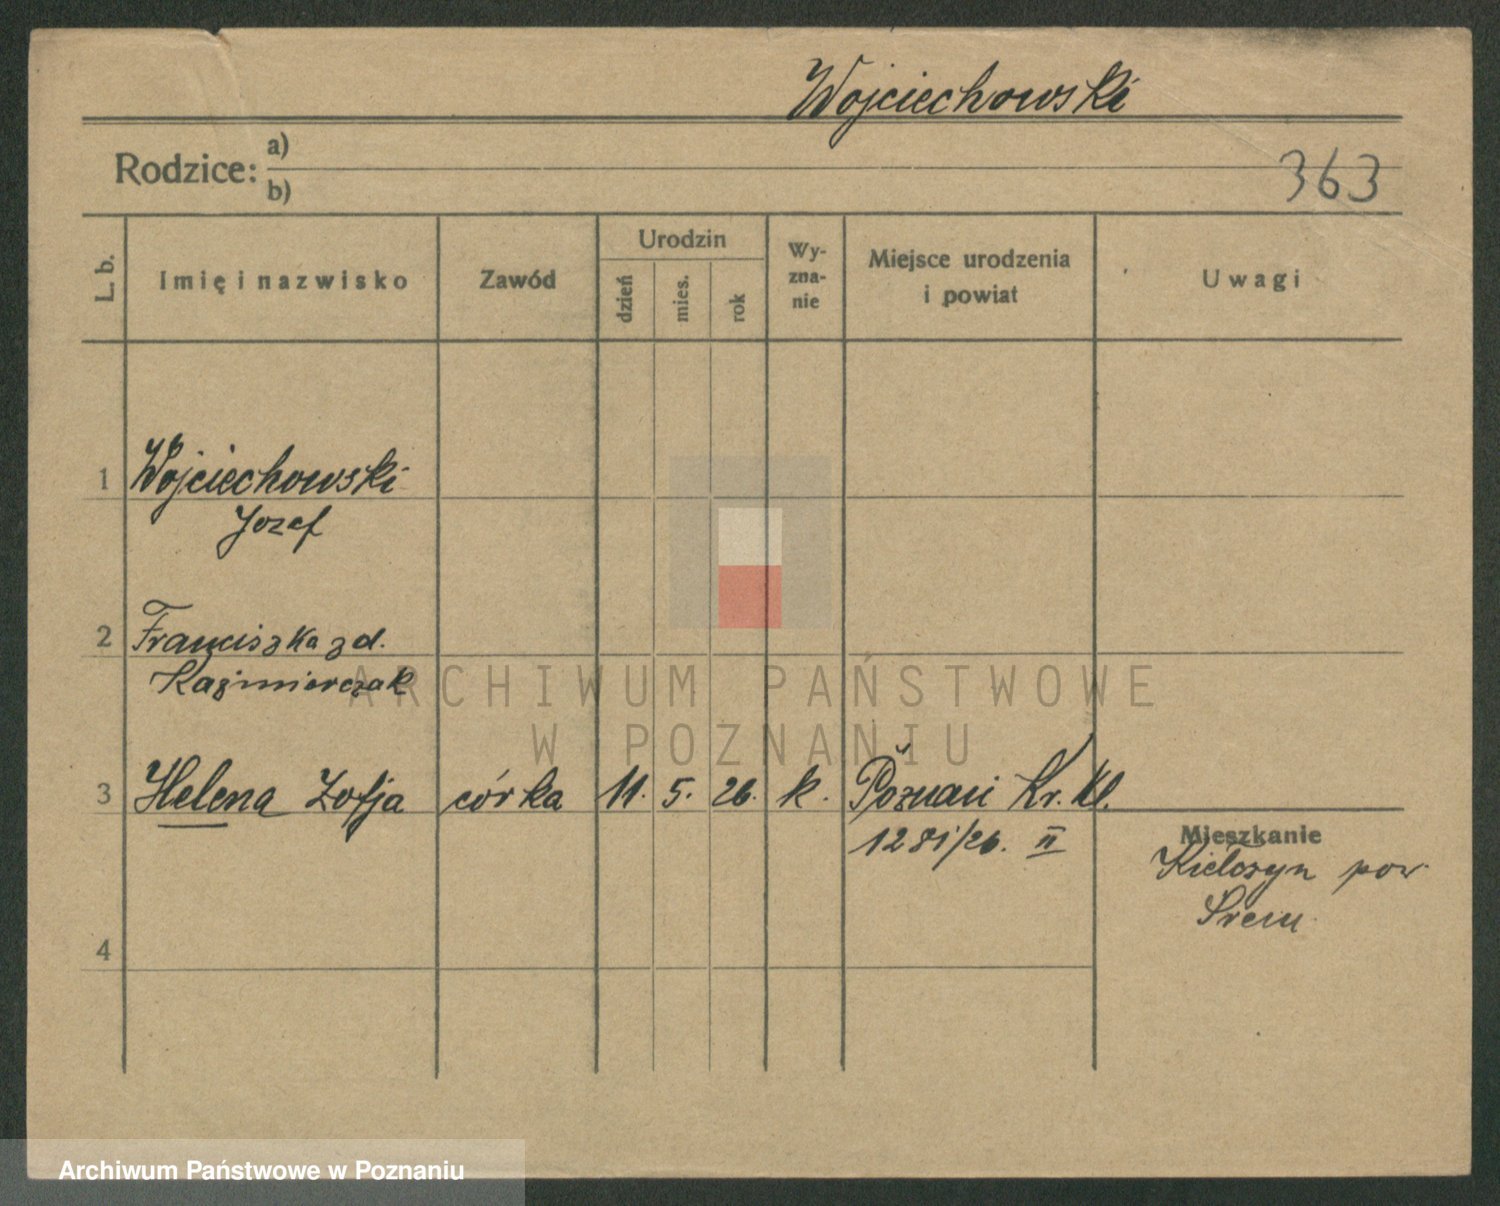 Wojciechowski
Rodzice: a)
b)
363
L. b.
Imię i nazwisko
Zawód
Urodzin
dzień
mies.
rok
Wy-
zna-
nie
Miejsce urodzenia
i powiat
Uwagi
1 Wojciechowski
Jozef
2 Franciszka z d.
Kaźmierczak
ARCHIWUM PAŃSTWOWE
W POZNANIU
3 Helena Zofja córka 11. 5. 26. k. Poznań Kr. Kl.
1281/26. II
Mieszkanie
Kiełczyn pow.
Śrem
4
Archiwum Państwowe w Poznaniu